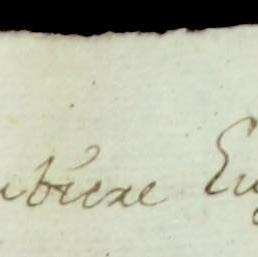 ubiere Eu